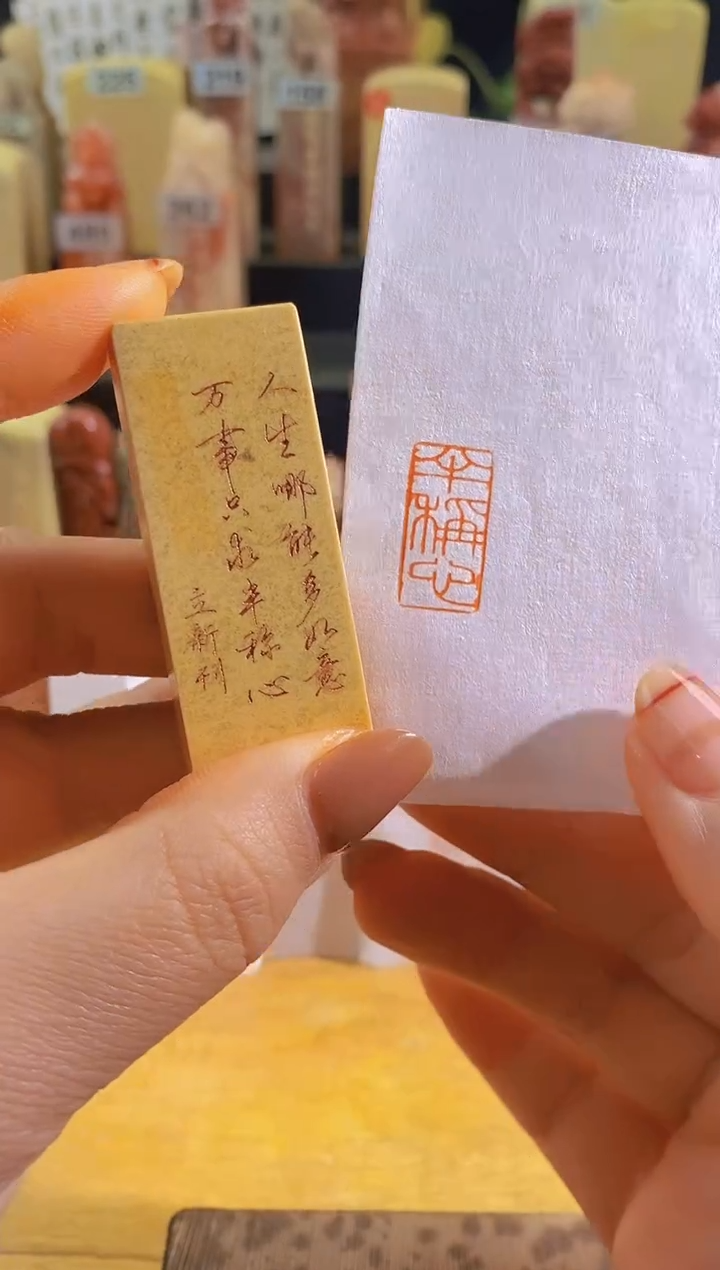 人生哪能多如意
万事只求半称心
立新刊
半稱心